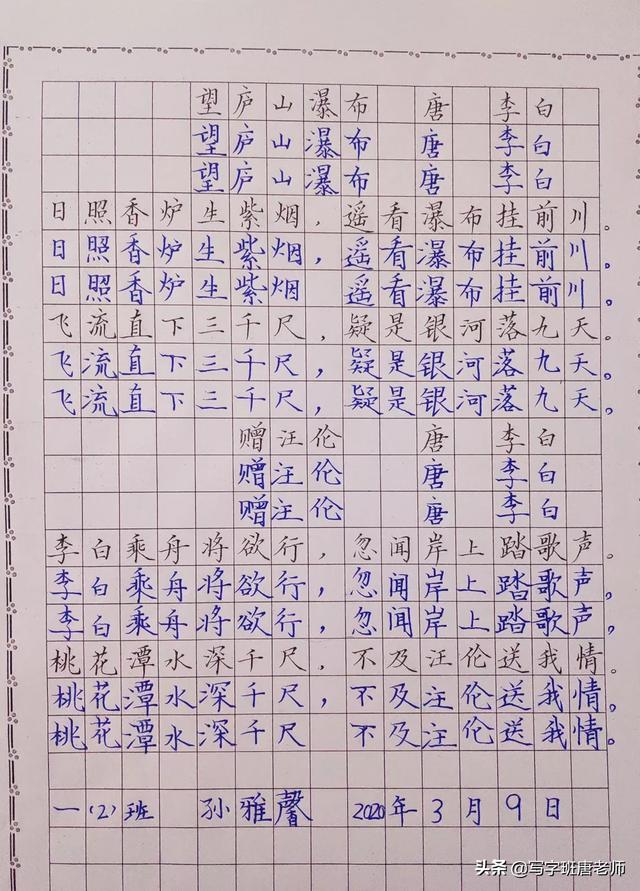 望庐山瀑布 唐 李白
望庐山瀑布 唐 李白
望庐山瀑布 唐 李白
日照香炉生紫烟，遥看瀑布挂前川。
日照香炉生紫烟，遥看瀑布挂前川。
日照香炉生紫烟 遥看瀑布挂前川。
飞流直下三千尺，疑是银河落九天。
飞流直下三千尺，疑是银河落九天。
飞流直下三千尺，疑是银河落九天。
赠汪伦 唐 李白
赠汪伦 唐 李白
赠汪伦 唐 李白
李白乘舟将欲行，忽闻岸上踏歌声。
李白乘舟将欲行，忽闻岸上踏歌声。
李白乘舟将欲行，忽闻岸上踏歌声，
桃花潭水深千尺，不及汪伦送我情。
桃花潭水深千尺，不及汪伦送我情。
桃花潭水深千尺 不及汪伦送我情。
一(2)班 孙雅馨 2020年3月9日
头条@写字班唐老师